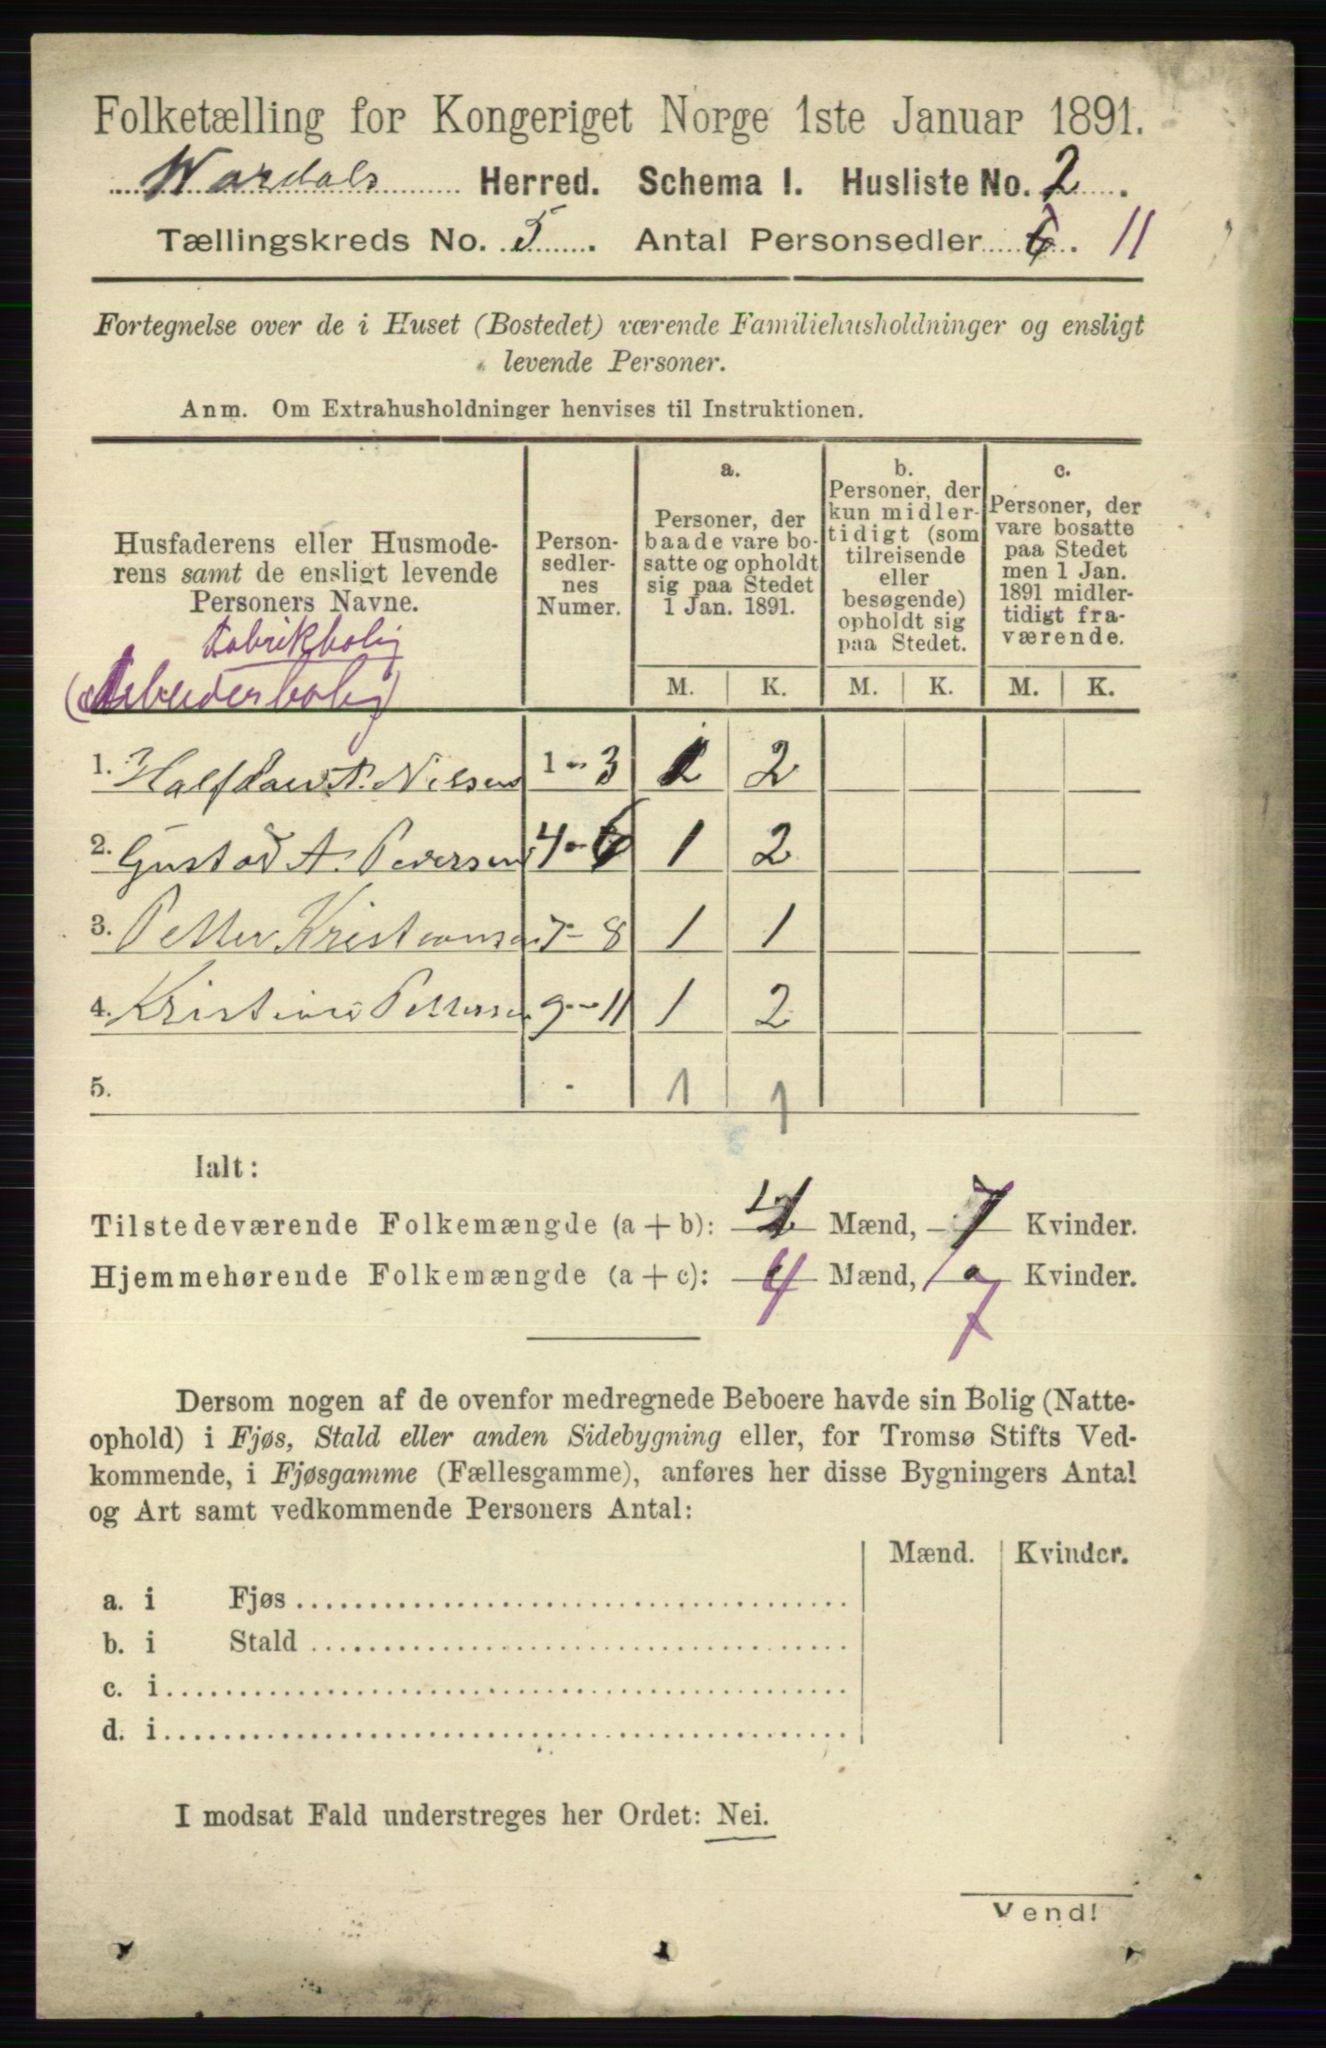 Folketælling for Kongeriget Norge 1ste Januar 1891.
Wardals Herred. Schema I. Husliste No. 2.
Tællingskreds No. 5. Antal Personsedler 6. 11
Fortegnelse over de i Huset (Bostedet) værende Familiehusholdninger og ensligt
levende Personer.
Anm. Om Extrahusholdninger henvises til Instruktionen.
Husfaderens eller Husmode-
rens samt de ensligt levende
Personers Navne.
Fabrikbolig
(Arbeiderbolig)
Person-
sedler-
nes
Numer.
a.
Personer, der
baade vare bo-
satte og opholdt
sig paa Stedet
1 Jan. 1891.
b.
Personer, der
kun midler-
tidigt (som
tilreisende
eller
besøgende)
opholdt sig
paa Stedet.
c.
Personer, der
vare bosatte
paa Stedet
men 1 Jan.
1891 midler-
tidigt fra-
værende.
M. K. M. K. M. K.
1. Halfdan A. Nilsen 1-3 1 2
2. Gustav A. Pedersen 4-6 1 2
3. Petter Kristiansen 7-8 1 1
4. Kristine Pettersen 9-11 1 2
5. 1 1
Ialt:
Tilstedeværende Folkemængde (a + b): 4 Mænd, 7 Kvinder.
Hjemmehørende Folkemængde (a + c): 4 Mænd, 7 Kvinder.
Dersom nogen af de ovenfor medregnede Beboere havde sin Bolig (Natte-
ophold) i Fjøs, Stald eller anden Sidebygning eller, for Tromsø Stifts Ved-
kommende, i Fjøsgamme (Fællesgamme), anføres her disse Bygningers Antal
og Art samt vedkommende Personers Antal:
Mænd. Kvinder.
a. i Fjøs
b. i Stald
c. i
d. i
I modsat Fald understreges her Ordet: Nei.
Vend!